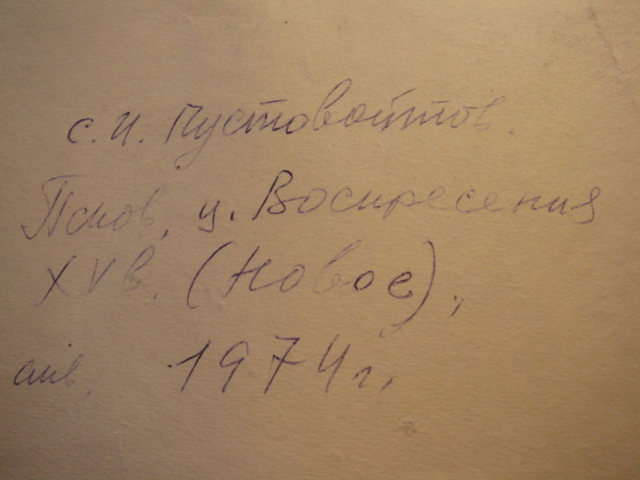 С. И. Пустовойтов.
Псков, ц. Воскресения
XV в. (Новое),
акв. 1974 г.